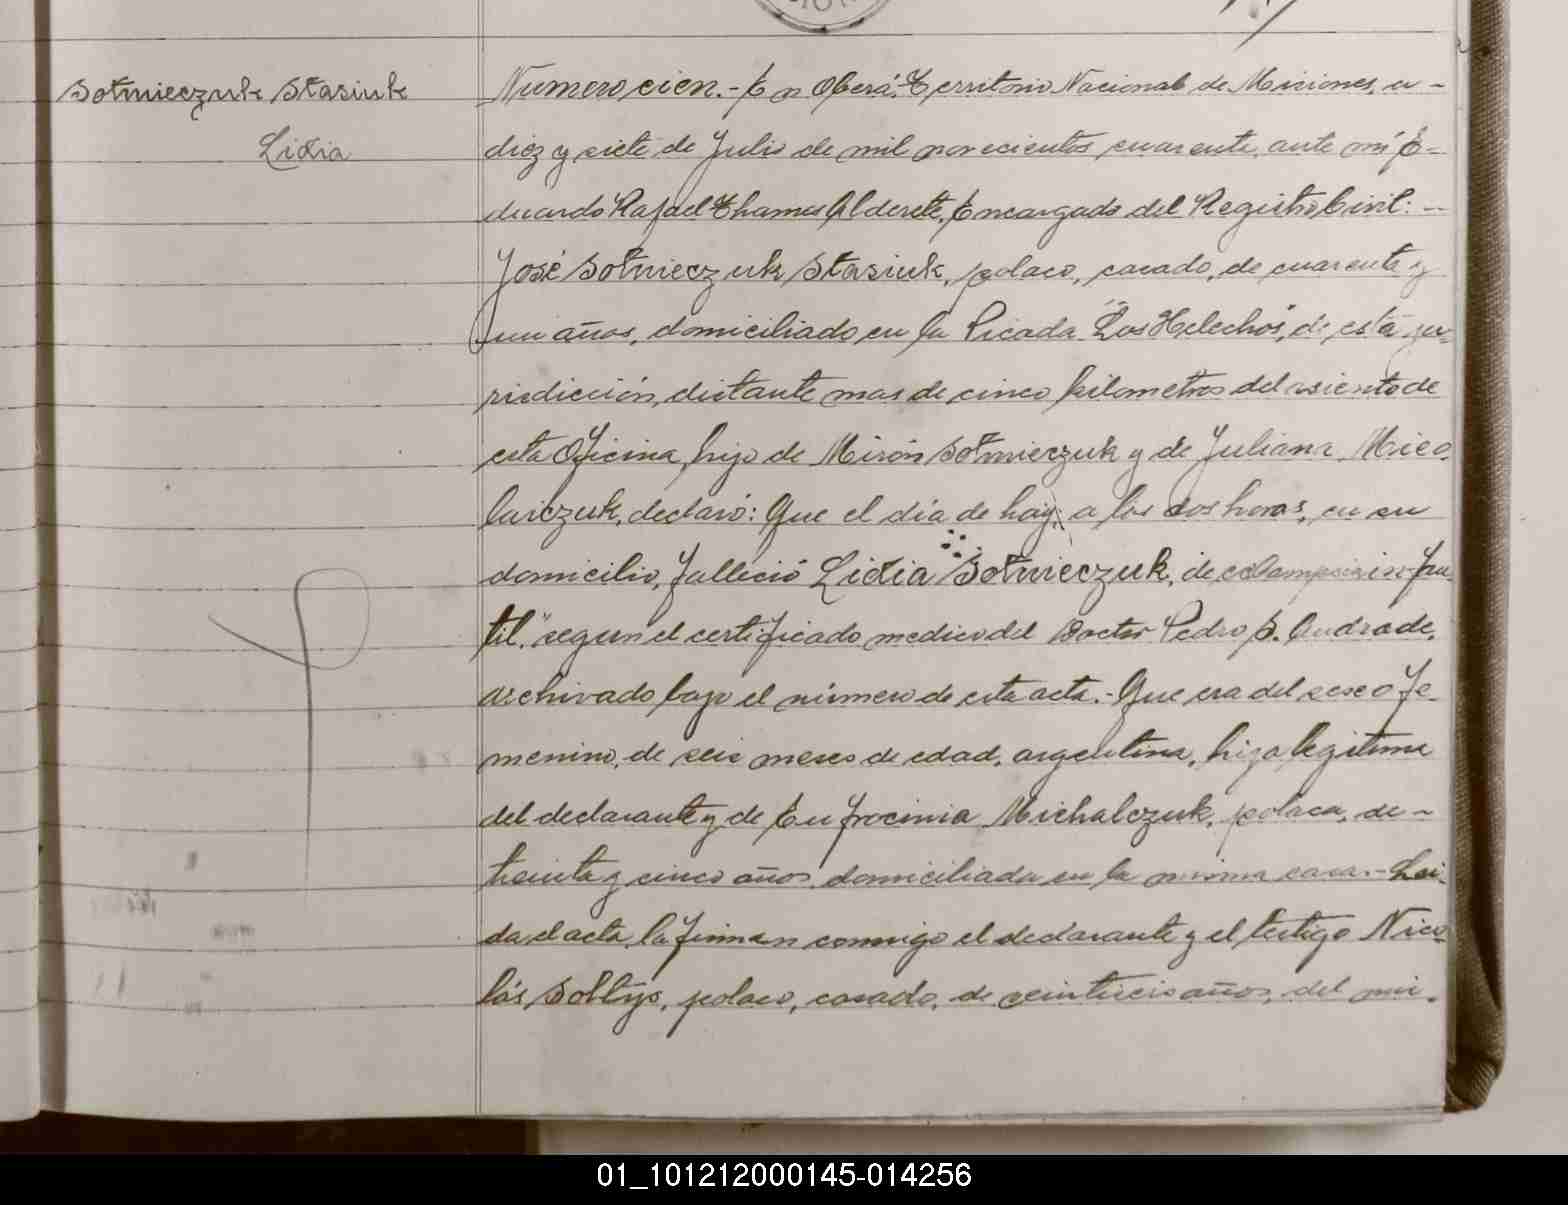 Sotnieczuk Stasiuk
Lidia
Numero cien.- En Oberá, Territorio Nacional de Misiones, a -
diez y siete de Julio de mil novecientos cuarenta, ante mí E-
duardo Rafael Thames Alderete, Encargado del Registro Civil: -
José Sotnieczuk Stasiuk, polaco, casado, de cuarenta y
un años, domiciliado en la Picada "Los Helechos", de esta ju-
risdicción, distante mas de cinco kilometros del asiento de
esta Oficina, hijo de Mirón Sotnieczuk y de Juliana Mico-
laiczuk, declaró: Que el día de hoy, a las dos horas, en su
domicilio, falleció Lidia Sotnieczuk, de eclampsia infan-
til, segun el certificado medico del Doctor Pedro S. Andrade,
archivado bajo el número de esta acta.- Que era del sexo fe-
menino, de seis meses de edad, argentina, hija legitima
del declarante y de Eufrocinia Michalczuk, polaca, de -
treinta y cinco años, domiciliada en la misma casa.- Leí-
da el acta, la firman conmigo el declarante y el testigo Nico-
lás Soltys, polaco, casado, de veintiseis años, del mi-
01_101212000145-014256